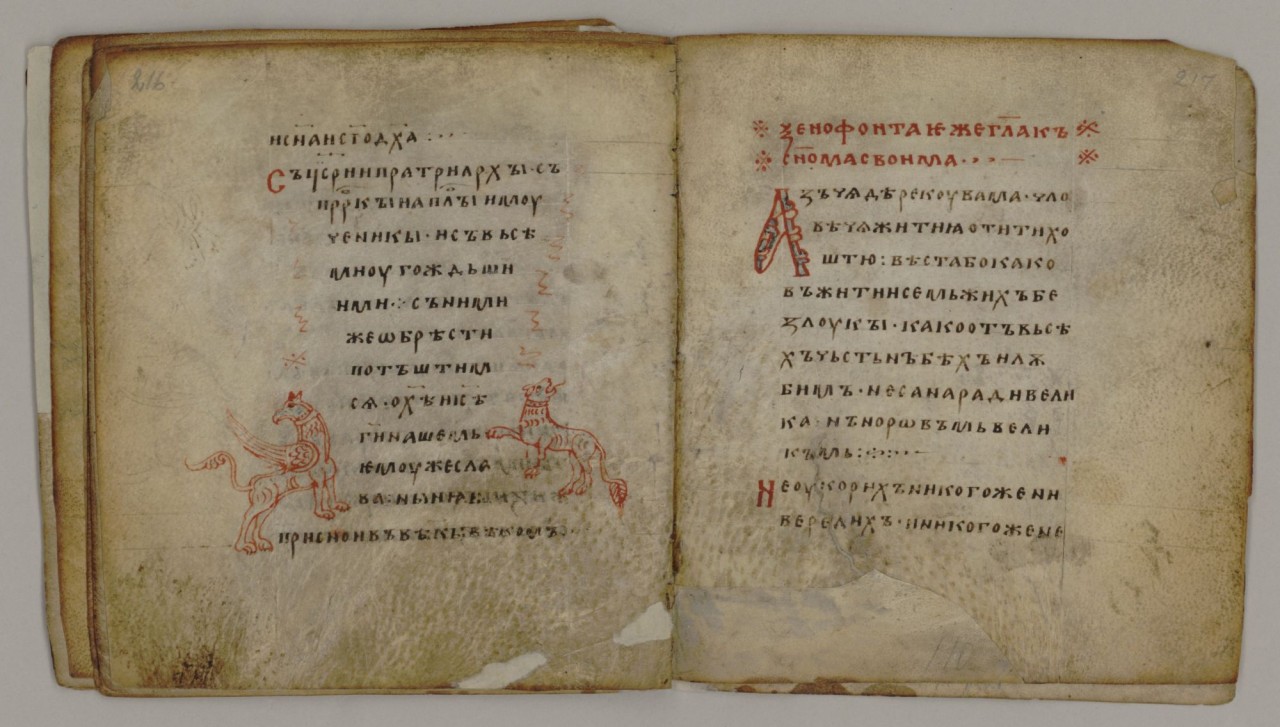 216
и с҃на и с҃тго дх҃а :··
Съ цс҃ри и патриархꙑ · съ
пр҃ркꙑ и ап҃лꙑ и моу
ченикꙑ · и съ вьсѣ
ми оугождьши
ими · съ ними
же ѡбрѣсти
потъштим
сѧ · о х҃ѣ ис҃ѣ
г҃и нашемь
ѥмоуже сла
ва · нꙑнꙗ
присно и въ вѣкꙑ вѣкомъ
217
ꙁенофонта ѥже гл҃а къ
с҃нома своима · · ·
Аꙁъ чѧдѣ рекоу вама · чло
вѣчѧ житиꙗ отити хо
штю : вѣста бо како
въ житии семь жихъ бе
ꙁ лоукꙑ · како отъ вьсѣ
хъ чьстьнъ бѣхъ и лѫ
бимъ · не сана ради вели
ка · нъ норѡвъмь вели
къмь :·
Не оукорихъ никогоже ни
вередихъ · ни никогоже не